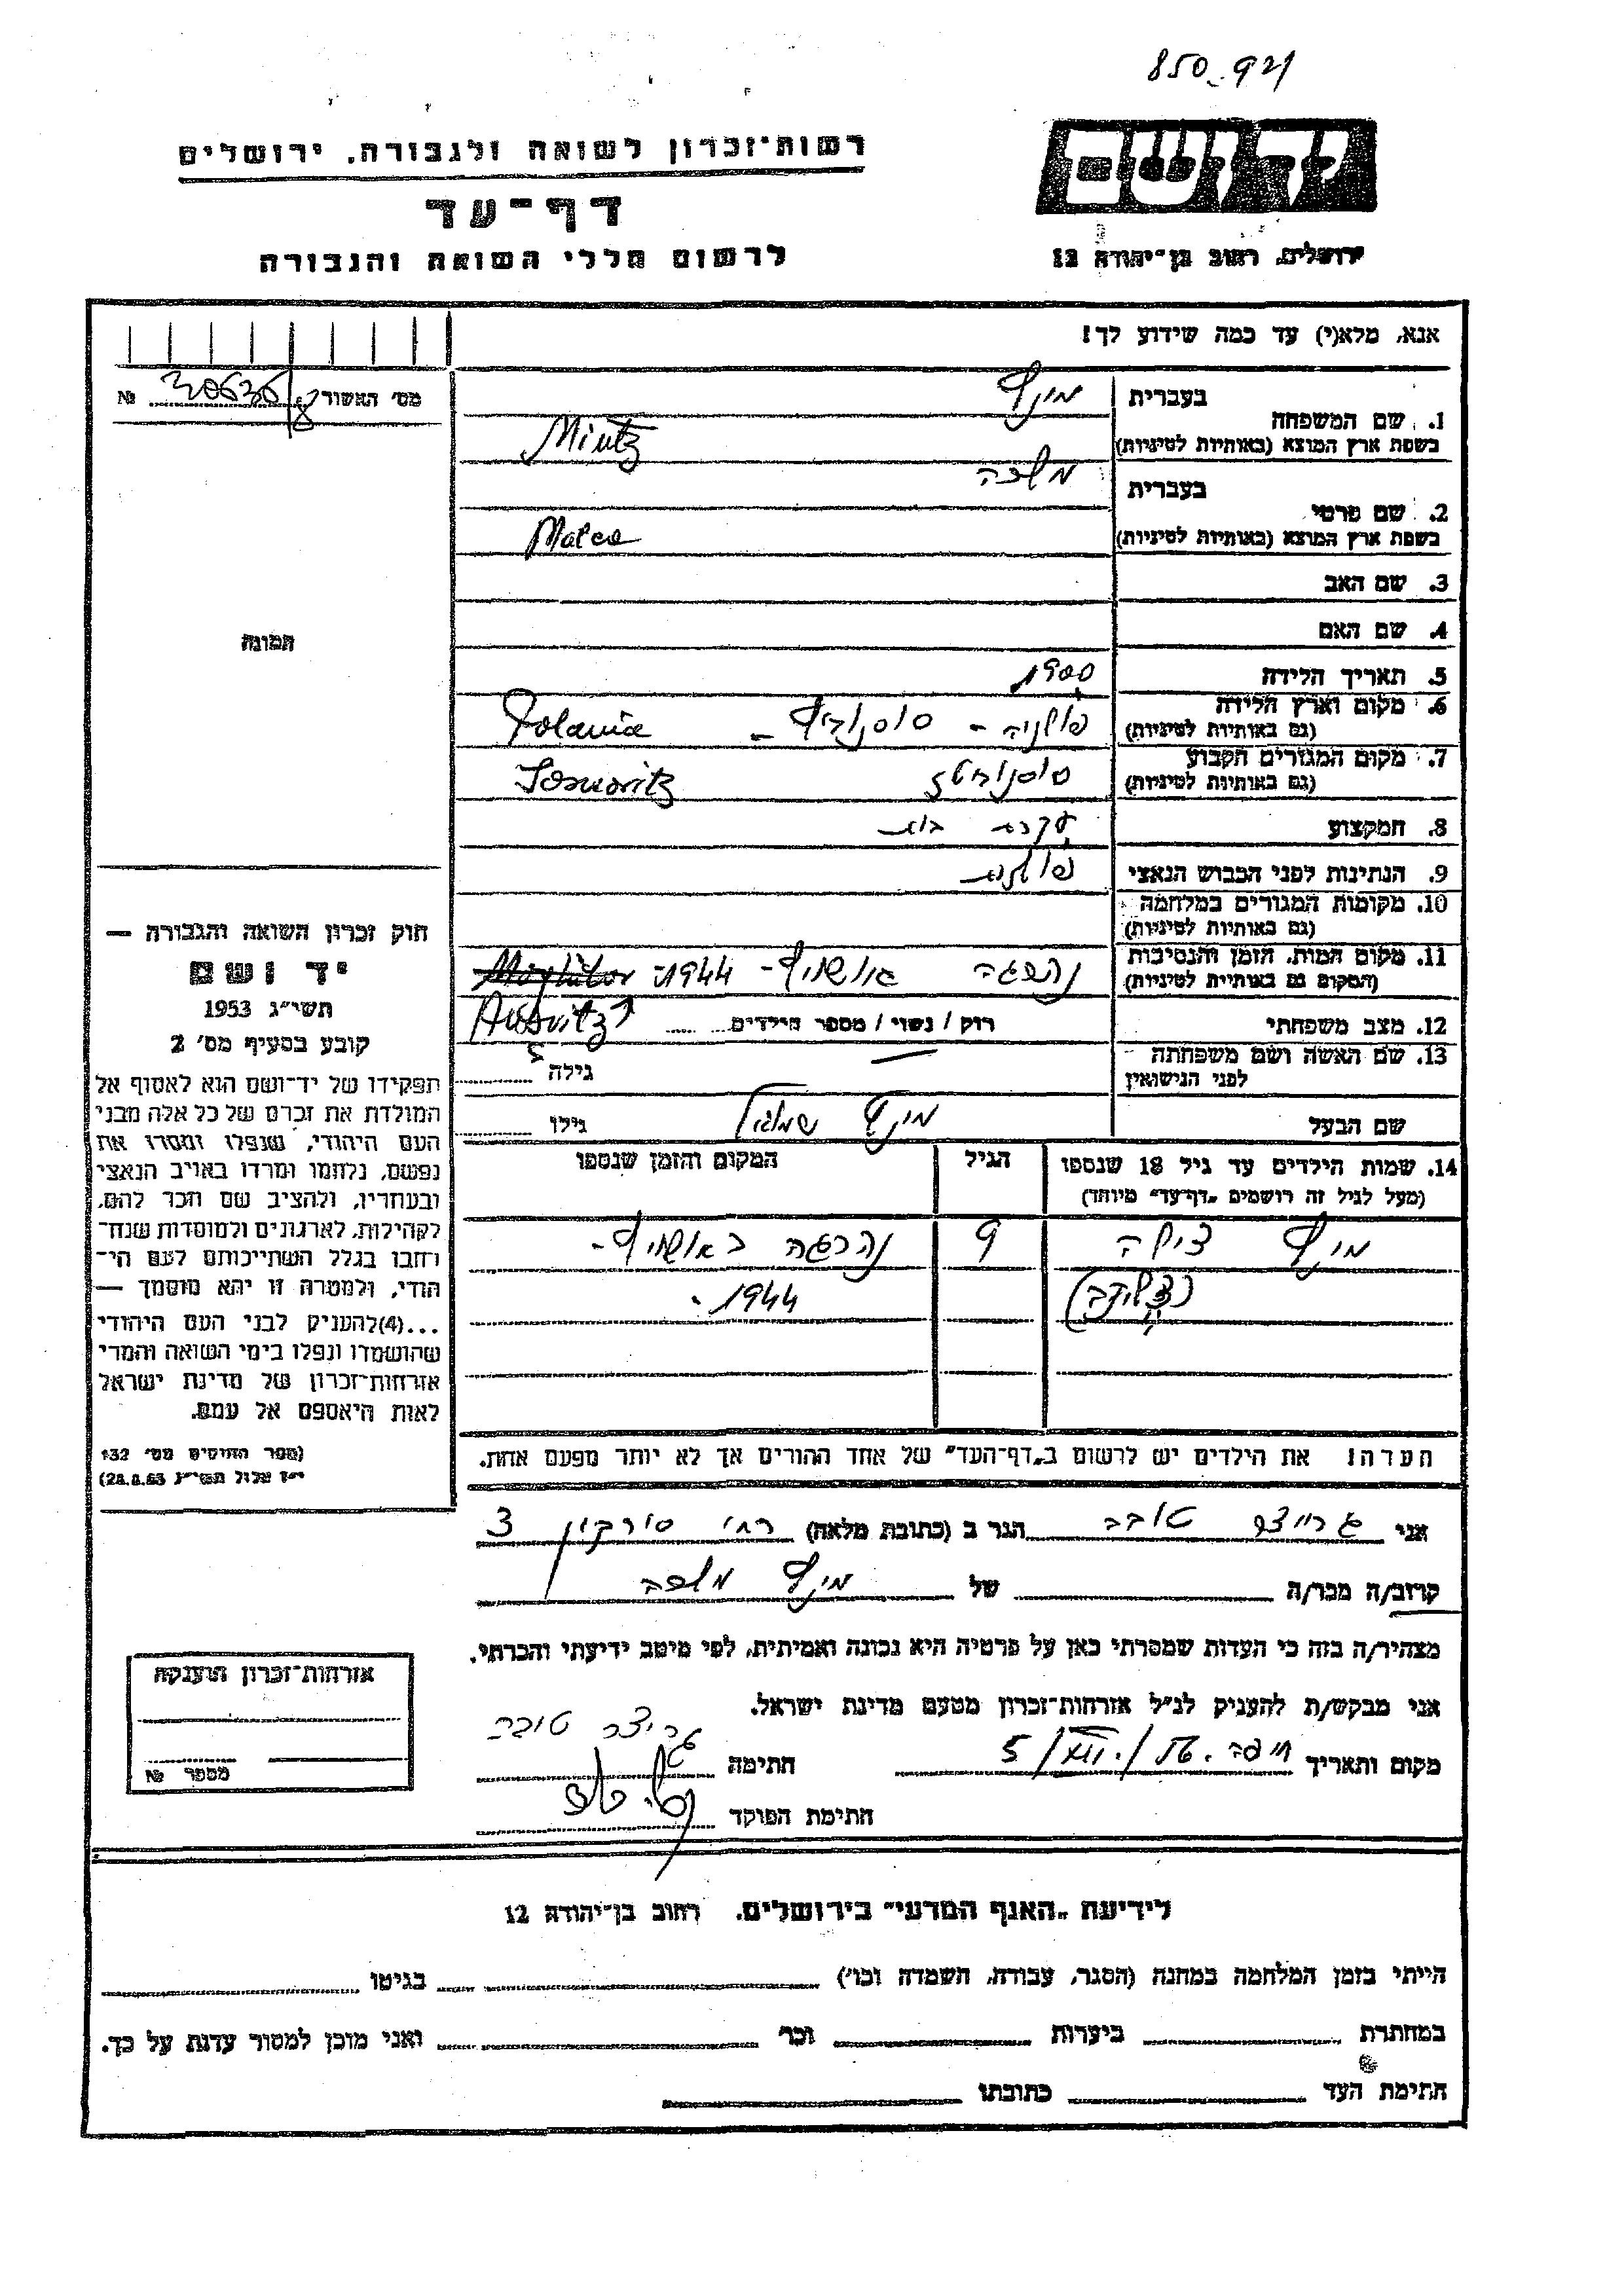 850-921
יד ושם
ירושלים, רחוב בן־יהודה 12
רשות־זכרון לשואה ולגבורה, ירושלים
דף־עד
לרשום חללי השואה והגבורה
אנא, מלא(י) עד כמה שידוע לך!
מס׳ האשור №
1. שם המשפחה
בעברית מינץ
בשפת ארץ המוצא (באותיות לטיניות) Mintz
2. שם פרטי
בעברית מלכה
בשפת ארץ המוצא (באותיות לטיניות) Malca
3. שם האב
4. שם האם
5. תאריך הלידה 1900
6. מקום וארץ הלידה
(גם באותיות לטיניות) פולניה - סוסנוביץ - Polania
7. מקום המגורים הקבוע
(גם באותיות לטיניות) סוסנוביטץ Sosnovitz
8. המקצוע עקרת בית
9. הנתינות לפני הכבוש הנאצי פולנית
10. מקומות המגורים במלחמה
(גם באותיות לטיניות)
11. מקום המות, הזמן והנסיבות
(המקום גם באותיות לטיניות) נהרגה אושויץ - 1944
Ausvitz
12. מצב משפחתי רוק / נשוי / מספר הילדים
13. שם האשה ושם משפחתה
לפני הנישואין — גילה
שם הבעל מינץ שמואל גילו
14. שמות הילדים עד גיל 18 שנספו הגיל המקום והזמן שנספו
(מעל לגיל זה רושמים „דף־עד״ מיוחד)
מינץ צילה 9 נהרגה באושויץ -
1944 -
הערה: את הילדים יש לרשום ב„דף־העד״ של אחד ההורים אך לא יותר מפעם אחת.
תמונה
חוק זכרון השואה והגבורה —
יד ושם
תשי״ג 1953
קובע בסעיף מס׳ 2
תפקידו של יד־ושם הוא לאסוף אל
המולדת את זכרם של כל אלה מבני
העם היהודי, שנפלו ומסרו את
נפשם, נלחמו ומרדו באויב הנאצי
ובעוזריו, ולהציב שם וזכר להם,
לקהילות, לארגונים ולמוסדות שנח־
רחבו בגלל השתייכותם לעם הי־
הודי, ולמטרה זו יהא מוסמך —
...(4)להעניק לבני העם היהודי
שהושמדו ונפלו בימי השואה והמרי
אזרחות־זכרון של מדינת ישראל
לאות היאספם אל עמם.
(ספר החוקים מס׳ 132
י״ז אלול תשי״ג 28.8.53)
אני גרייצר טובה הגר ב (כתובת מלאה) רח׳ סירקין 3
קרוב/ה מכר/ה של מינץ מלכה
מצהיר/ה בזה כי העדות שמסרתי כאן על פרטיה היא נכונה ואמיתית, לפי מיטב ידיעתי והכרתי.
אני מבקש/ת להעניק לנ״ל אזרחות־זכרון מטעם מדינת ישראל.
מקום ותאריך חיפה חתימה גריצר טובה
חתימת הפוקד
אזרחות־זכרון הוענקה
מספר №
לידיעת „האגף המדעי״ בירושלים, רחוב בן־יהודה 12
הייתי בזמן המלחמה במחנה (הסגר, עבודה, השמדה וכו׳) בגיטו
במחתרת ביערות וכו׳ ואני מוכן למסור עדות על כך.
חתימת העד כתובתו